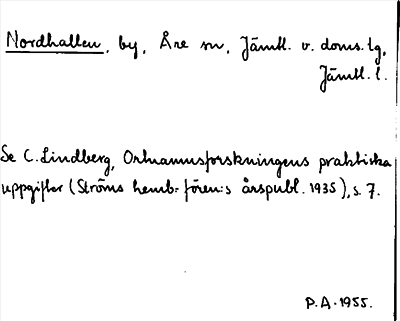 Nordhallen, by, Åre sn, Jämtl. v. doms. lg,
Jämtl. l.
Se C. Lindberg, Ortnamnsforskningens praktiska
uppgifter (Ströms hemb. fören:s årspubl. 1935), s. 7.
P.A. 1955.